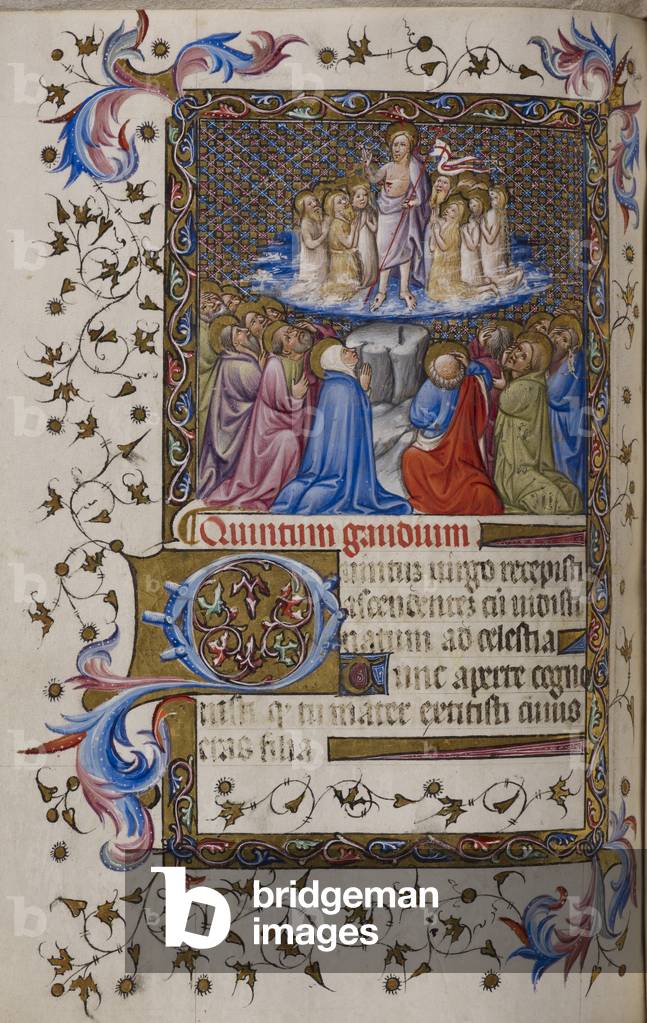 Quintum gaudium
Quintuz uirgo recepisti
ascendentez cū uidisti
natum ad celestia
Nunc aperte cogno
uisti q tu mater extitisti cuius
eras filia
b bridgeman
images